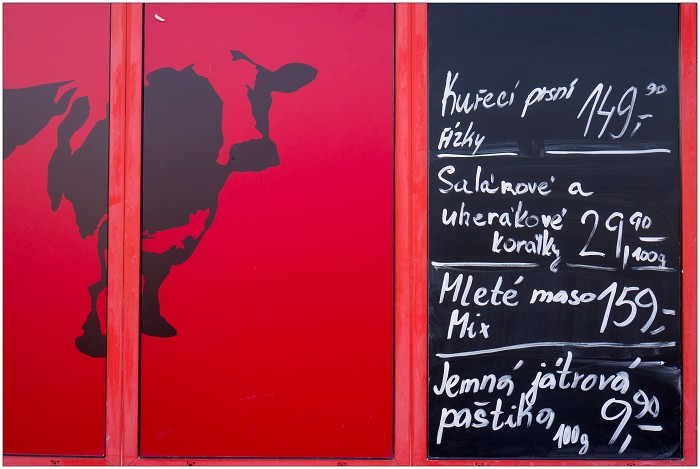 Kuřecí prsní 149,- 90
řízky
Salámové a
uherákové 29,90
korálky 100g
Mleté maso 159,-
Mix
Jemná játrová
paštika 9,90
100g